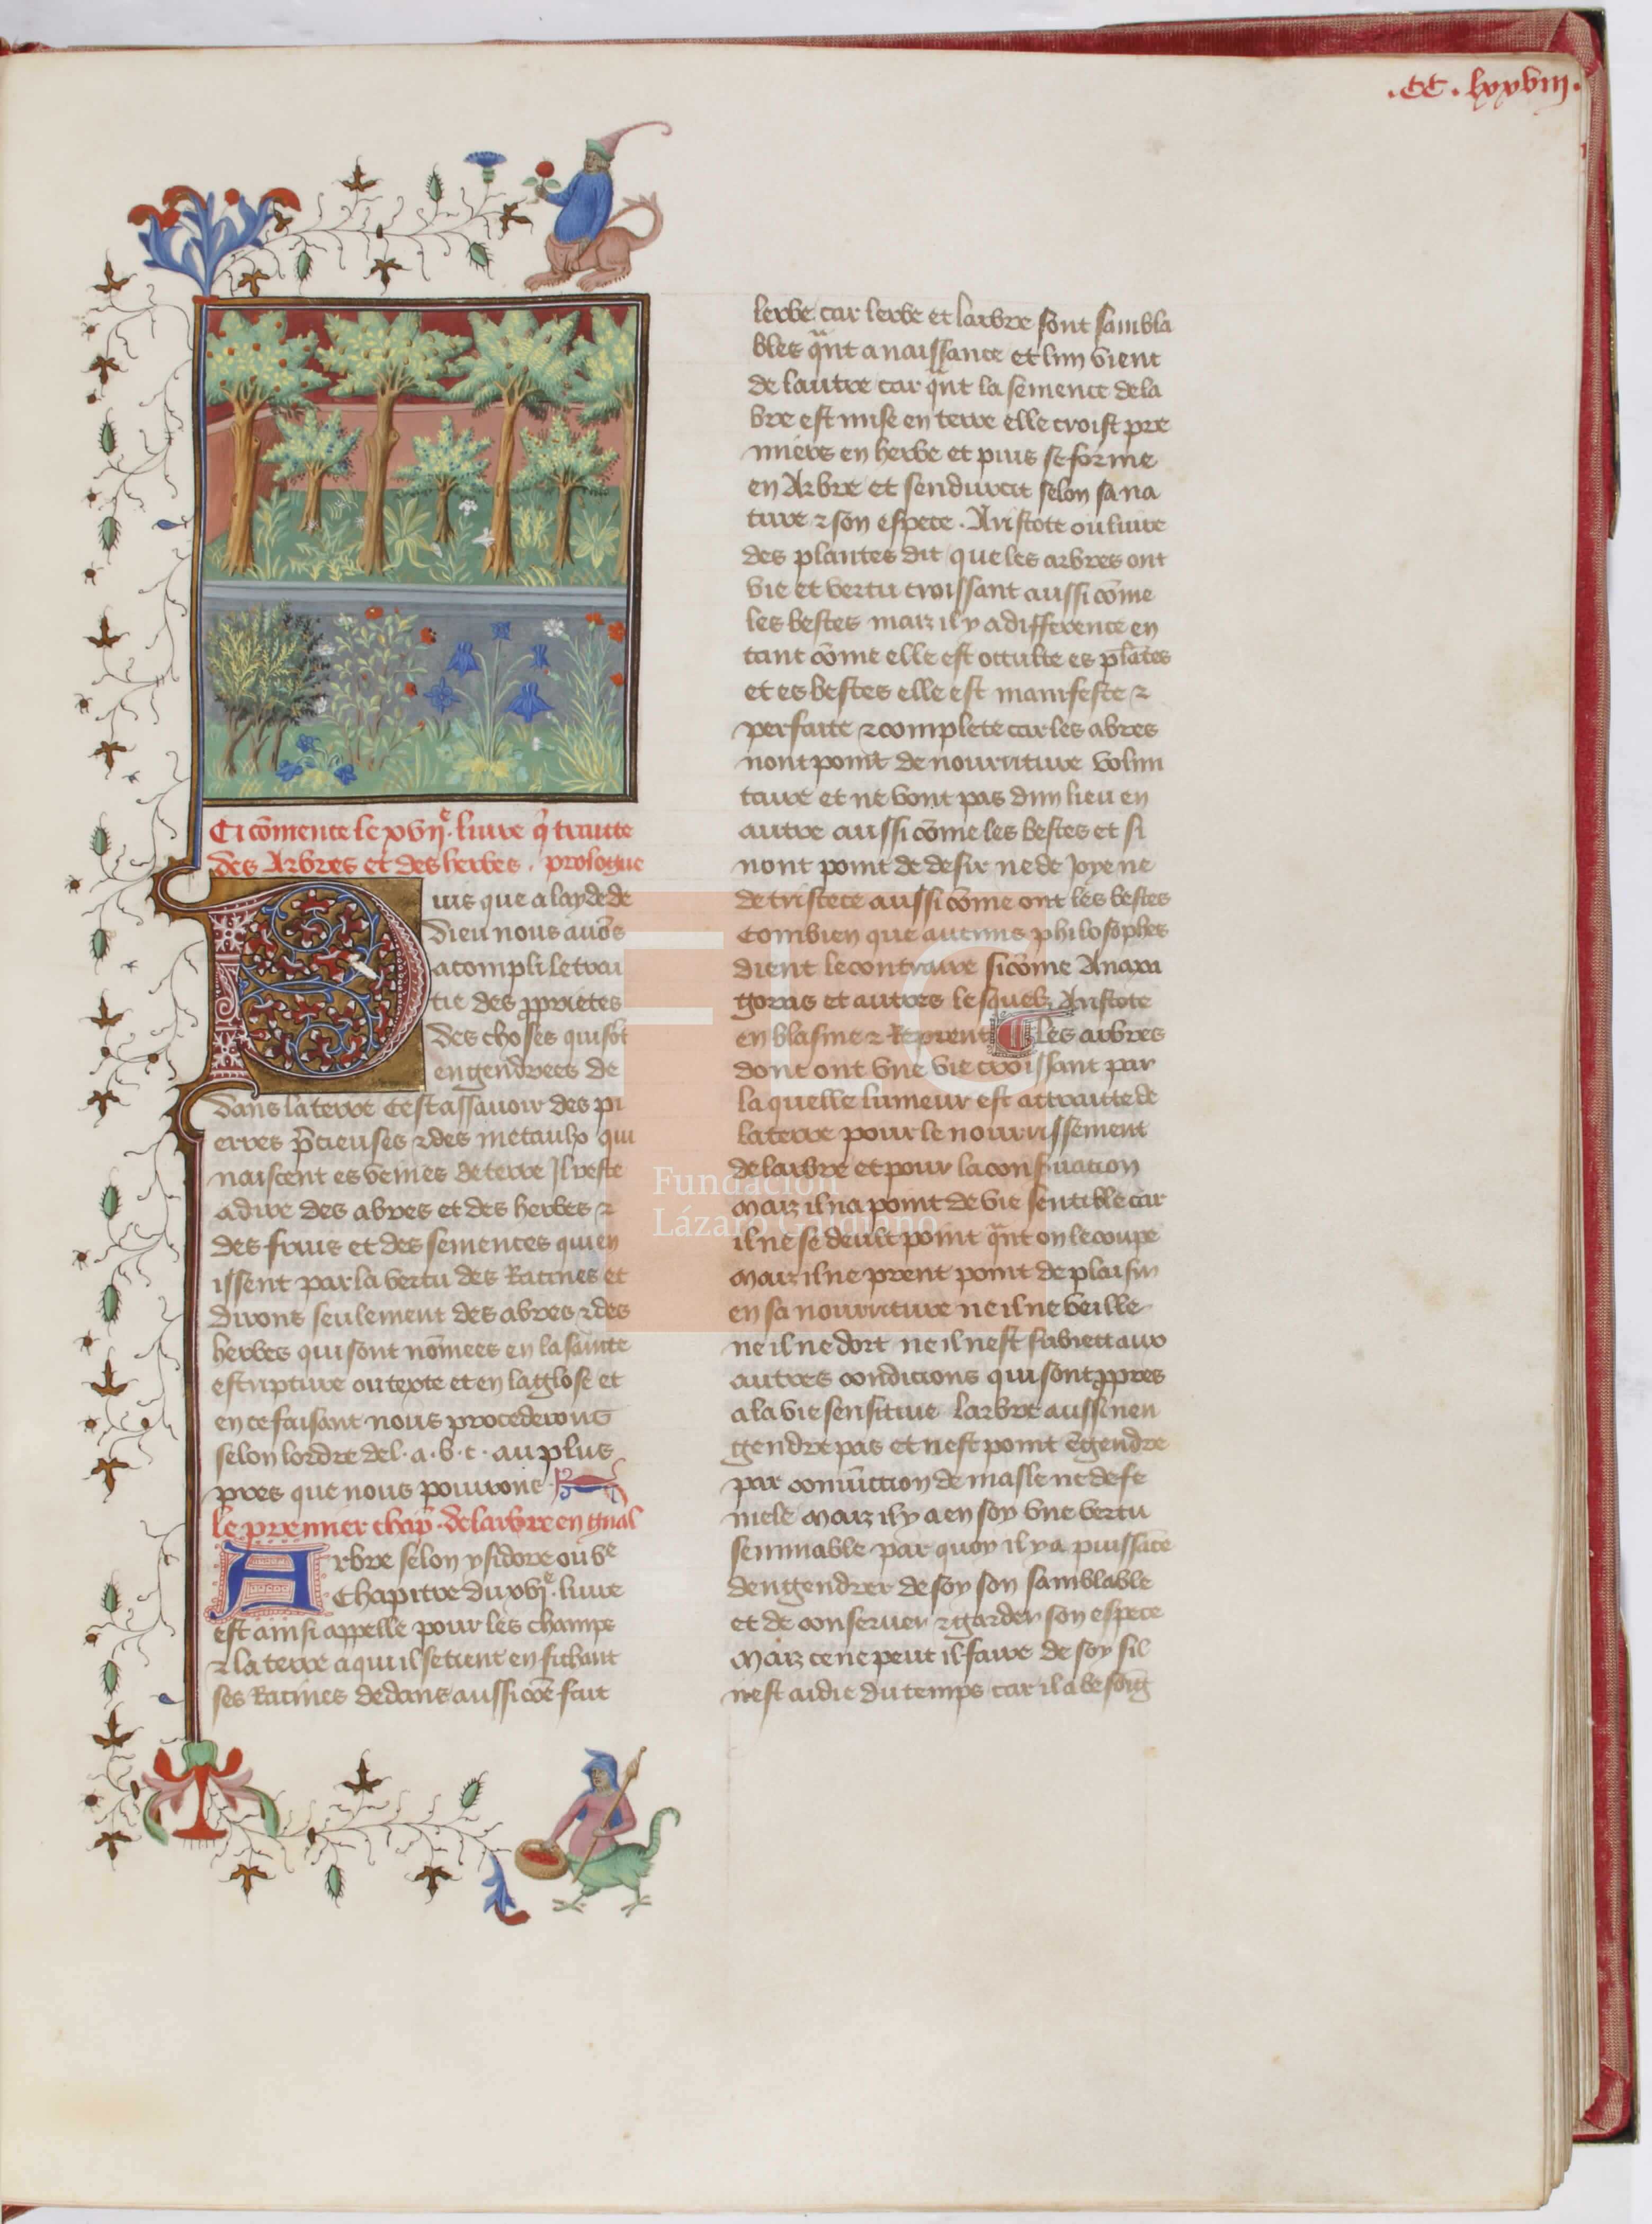 .CC.lxxviii.
Ci cõmence le xvij.e liure q̃ traitte
des Arbres et des herbes . prologue
Puis que a layde de
dieu nous auõs
acompli le trai
tie des ꝓprietes
des choses qui sõt
engendrees de
dans la terre Cestassauoir des pi
erres p̃cieuses ⁊ des metaulx qui
naiscent es veines de terre Il reste
a dire des abres et des herbes ⁊
des fruis et des semences qui en
issent par la vertu des Racines et
dirons seulement des abres ⁊ des
herbes qui sont nõmees en la sainte
escripture ou texte et en la glose et
en ce faisant nous procederons
selon lordre del . a . b . c . au plus
pres que nous pourrons
le premier chap̃ . de larbre en gñal
Arbre selon ysidore ou v.e
Chapitre du xvij.e liure
est ainsi appelle pour les champs
⁊ la terre a qui il se tient en fichant
ses Racines dedans aussi cõe fait
lerbe . car lerbe et larbre sont sambla
bles q̃nt a naissance et lun vient
de lautre car q̃nt la semence dela
bre est mise en terre elle croist pre
miers en herbe et puis se forme
en Arbre et sendurcit selon sa na
ture ⁊ son espece . Aristote ou liure
des plantes dit que les arbres ont
vie et vertu croissant aussi cõme
les bestes maiz il y a difference en
tant cõme elle est occulte es plãtes
et es bestes elle est manifeste ⁊
perfaite ⁊ complete car les abres
nont point de nourriture volun
taire et ne vont pas dun lieu en
autre aussi cõme les bestes et si
nont point de desir ne de Joye ne
de tristece aussi cõme ont les bestes
Combien que aucuns philosophes
dient le contraire sicõme Anaxa
goras et autres lesquelz Aristote
en blasme ⁊ Reprent les arbres
dont ont vne vie croissant par
la quelle lumeur est attraite de
la terre pour le nourrissement
de larbre et pour la conseruacion
Maiz il na point de vie sentible car
il ne se deult point q̃nt on le coupe
Maiz il ne prent point de plaisir
en sa nourriture ne il ne veille
ne il ne dort ne il nest subiect aux
autres condicions qui sont ꝓpres
a la vie sensitiue larbre aussi nen
gendre pas et nest point ẽgendre
par coniũction de masle ne de fe
mele Maiz il y a en soy vne vertu
seminable par quoy il y a puissãce
dengendrer de soy son samblable
et de conseruer ⁊ garder son espece
Maiz ce ne peut il faire de soy sil
nest aidie du temps car il a besoĩg
FLG
Fundación
Lázaro Galdiano